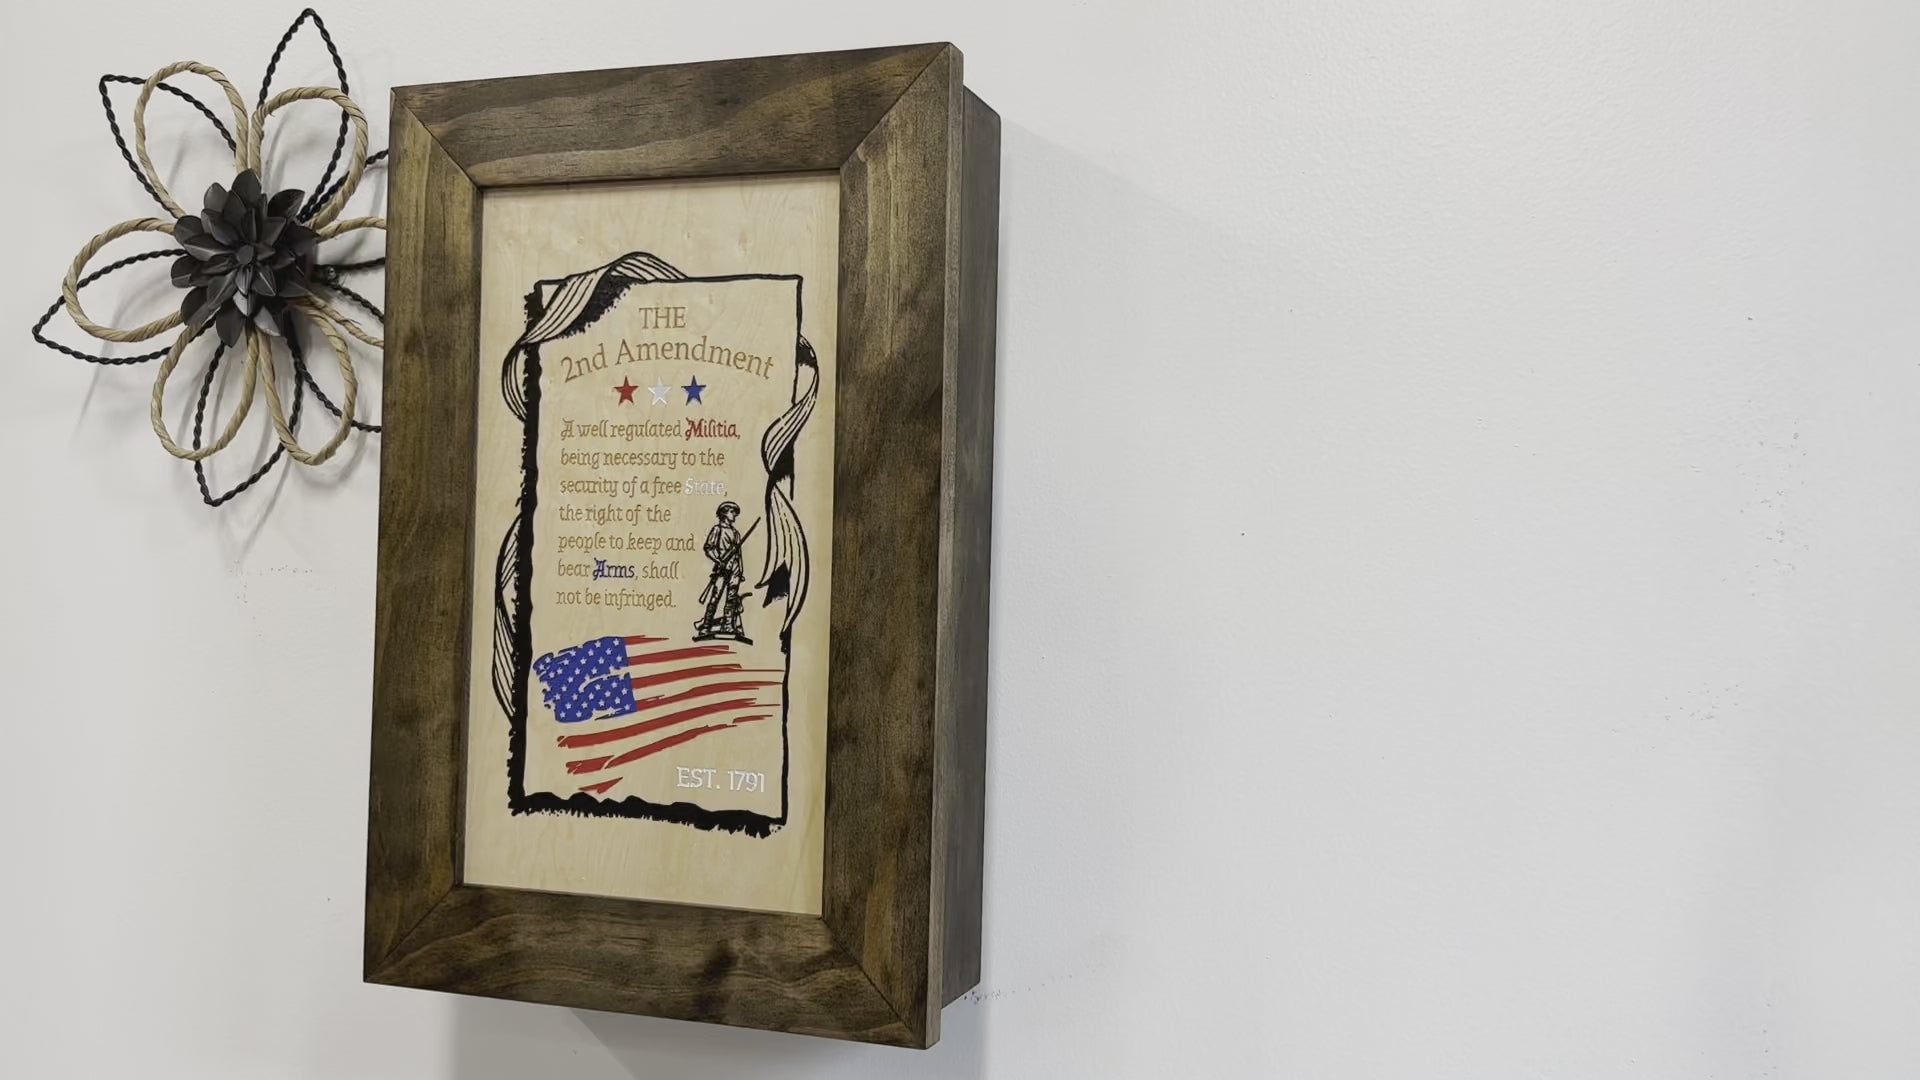 THE
2nd Amendment
A well regulated Militia,
being necessary to the
security of a free State,
the right of the
people to keep and
bear Arms, shall
not be infringed.
EST. 1791